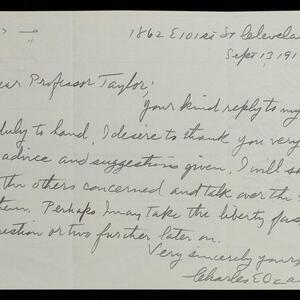 1862 E 101 St Cleveland
Sept 13, 191
ear Professor Taylor;
Your kind reply to my
duly to hand, I desire to thank you very
advice and suggestions given. I will s
the others concerned and talk over the
them. Perhaps I may take the liberty of as
estion or two further later on.
Very sincerely yours
Charles E